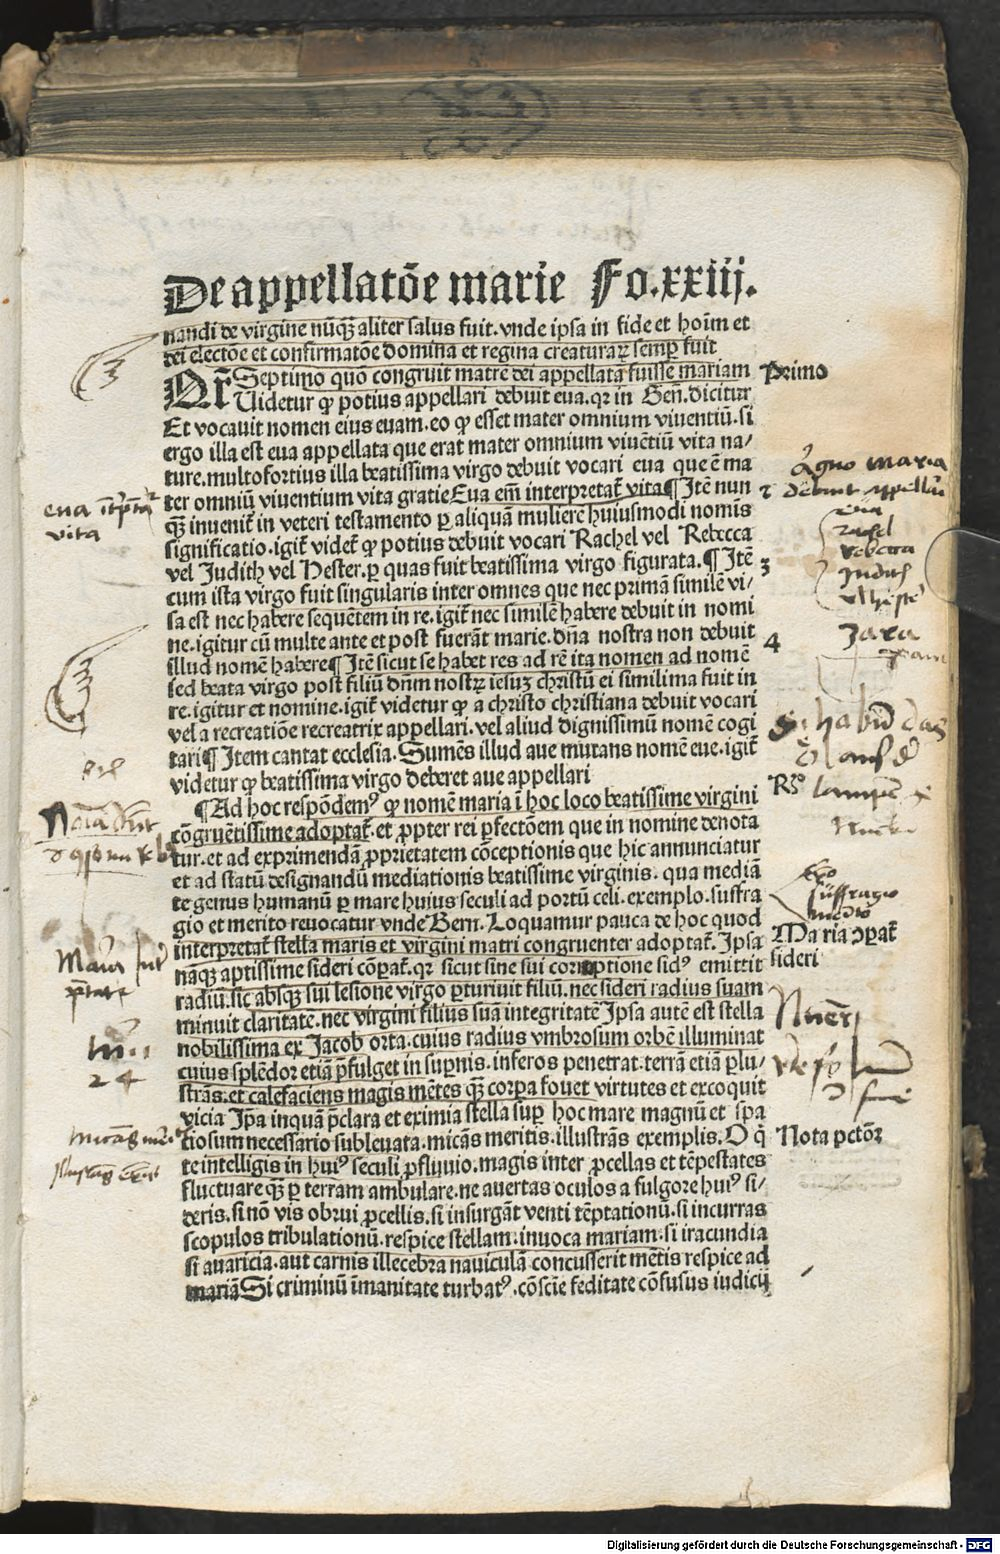 De appellatōe marie Fo.xxiij.
nandi de virgine nūq̃ aliter salus fuit. vnde ipsa in fide et hoīm et
dei electōe et confirmatōe domina et regina creaturaꝝ semp̱ fuit
Qr̄ Septimo quō congruit matrē dei appellatā fuisse mariam
Primo
Uidetur ꝙ potius appellari debuit eua. qꝛ in Geñ. dicitur
Et vocauit nomen eius euam. eo ꝙ esset mater omnium viuentiū. si
ergo illa est eua appellata que erat mater omnium viuētiū vita na/
ture. multofortius illa beatissima virgo debuit vocari eua que ē ma
ter omniū viuentium vita gratie Eua em̄ interpretat̄ vita ¶ Itē nun
2
q̃ inuenit̄ in veteri testamento ꝑ aliquā mulierē huiusmodi nomīs
significatio. igit̄ videt̄ ꝙ potius debuit vocari Rachel vel Rebecca
vel Judith vel Hester. ꝑ quas fuit beatissima virgo figurata. ¶ Itē
3
cum ista virgo fuit singularis inter omnes que nec primā similē vi/
sa est nec habere sequētem in re. igit̄ nec similē habere debuit in nomi
ne. igitur cū multe ante et post fuerāt marie. dn̄a nostra non debuit
4
illud nomē habere ¶ Itē sicut se habet res ad rē ita nomen ad nomē
sed beata virgo post filiū dn̄m nostrꝝ iesuꝫ christū ei similima fuit in
re. igitur et nomine. igit̄ videtur ꝙ a christo christiana debuit vocari
vel a recreatiōe recreatrix appellari. vel aliud dignissimū nomē cogi
tari ¶ Item cantat ecclesia. Sumēs illud aue mutans nomē eue. igit̄
videtur ꝙ beatissima virgo deberet aue appellari
Rꝰ
¶ Ad hoc respōdemꝰ ꝙ nomē maria ī hoc loco beatissime virgini
cōgruētissime adoptat̄. et ꝓpter rei ꝑfectōem que in nomine denota
tur. et ad exprimendā ꝓprietatem cōceptionis que hic annunciatur
et ad statū designandū mediationis beatissime virginis. qua mediā
te genus humanū ꝑ mare huius seculi ad portū celi. exemplo. suffra
gio et merito reuocatur vnde Bern. Loquamur pauca de hoc quod
interpretat̄ stella maris et virgini matri congruenter adoptat̄. Ipsa
Maria ↄpat̄
sideri
nāq̃ aptissime sideri cōꝑat̄. qꝛ sicut sine sui corruptione sidꝰ emittit
radiū. sic absq̃ sui lesione virgo ꝑturiuit filiū. nec sideri radius suam
minuit claritatē. nec virgini filius suā integritatē Ipsa autē est stella
nobilissima ex Jacob orta. cuius radius vmbrosum orbē illuminat
cuius splēdor etiā p̄fulget in suꝑnis. inferos penetrat. terrā etiā ꝑlu/
strās. et calefaciens magis mētes q̃ corꝑa fouet virtutes et excoquit
vicia Ip̄a inquā p̄clara et eximia stella suꝑ hoc mare magnū et spa
tiosum necessario subleuata. micās meritis. illustrās exemplis. O q̄
Nota pctōꝝ
te intelligis in huiꝰ seculi ꝓfluuio. magis inter ꝓcellas et tēpestates
fluctuare q̃ ꝑ terram ambulare. ne auertas oculos a fulgore huiꝰ si/
deris. si nō vis obrui ꝓcellis. si insurgāt venti tēptationū. si incurras
scopulos tribulationū. respice stellam. inuoca mariam. si iracundia
si auaricia. aut carnis illecebra nauiculā concusserit mētis respice ad
mariā Si criminū īmanitate turbatꝰ. cōscīe feditate cōfusus iudicij
eua
vita
maria
debuit
eua
rebecca
suffragio
24
Digitalisierung gefördert durch die Deutsche Forschungsgemeinschaft - DFG